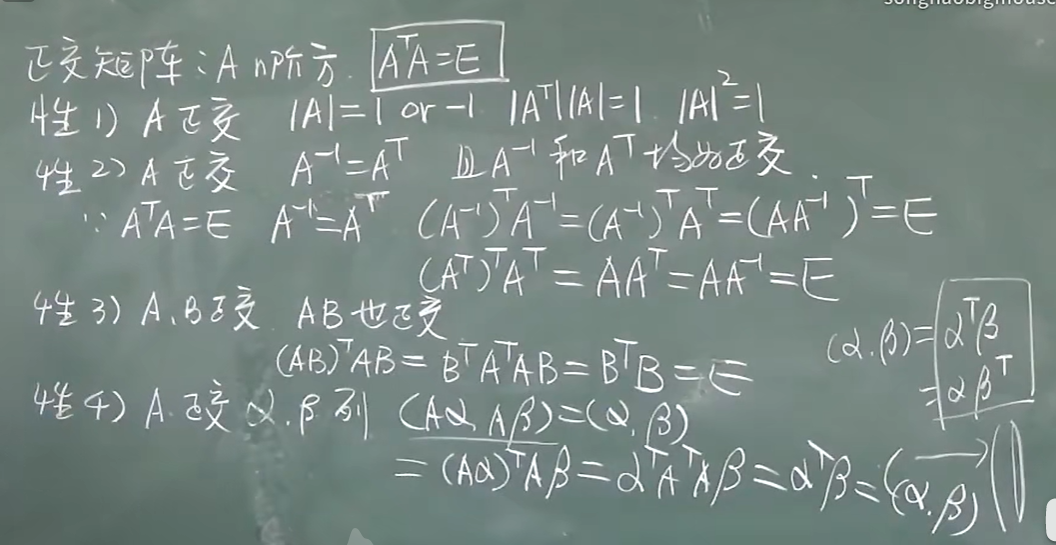 songhaobigmouse
正交矩阵:A n阶方. AᵀA=E
性1) A正交 |A|=1 or -1 |Aᵀ||A|=1. |A|²=1
性2) A正交 A⁻¹=Aᵀ 且A⁻¹和Aᵀ均为正交.
∵ AᵀA=E A⁻¹=Aᵀ (A⁻¹)ᵀA⁻¹=(A⁻¹)ᵀAᵀ=(AA⁻¹)ᵀ=E
(Aᵀ)ᵀAᵀ=AAᵀ=AA⁻¹=E
性3) A、B正交 AB也正交
(AB)ᵀAB=BᵀAᵀAB=BᵀB=E
(α.β)=αᵀβ
=αβᵀ
性4) A.正交 α.β列 (Aα,Aβ)=(α.β)
=(Aα)ᵀAβ=αᵀAᵀAβ=αᵀβ=(α.β)